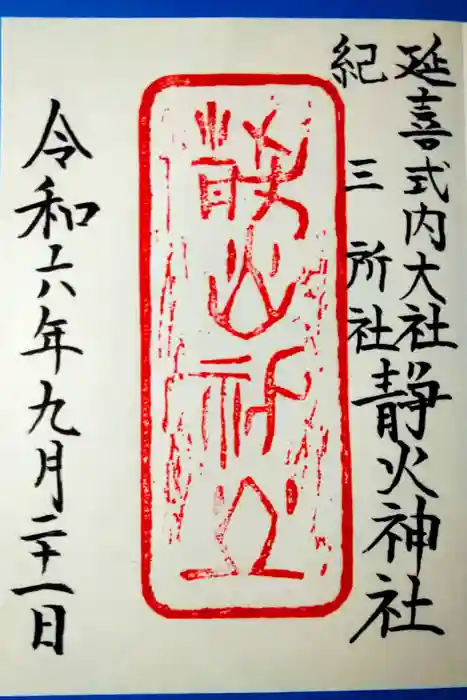 延喜式内大社
紀三所社
静火神社
令和六年九月二十一日